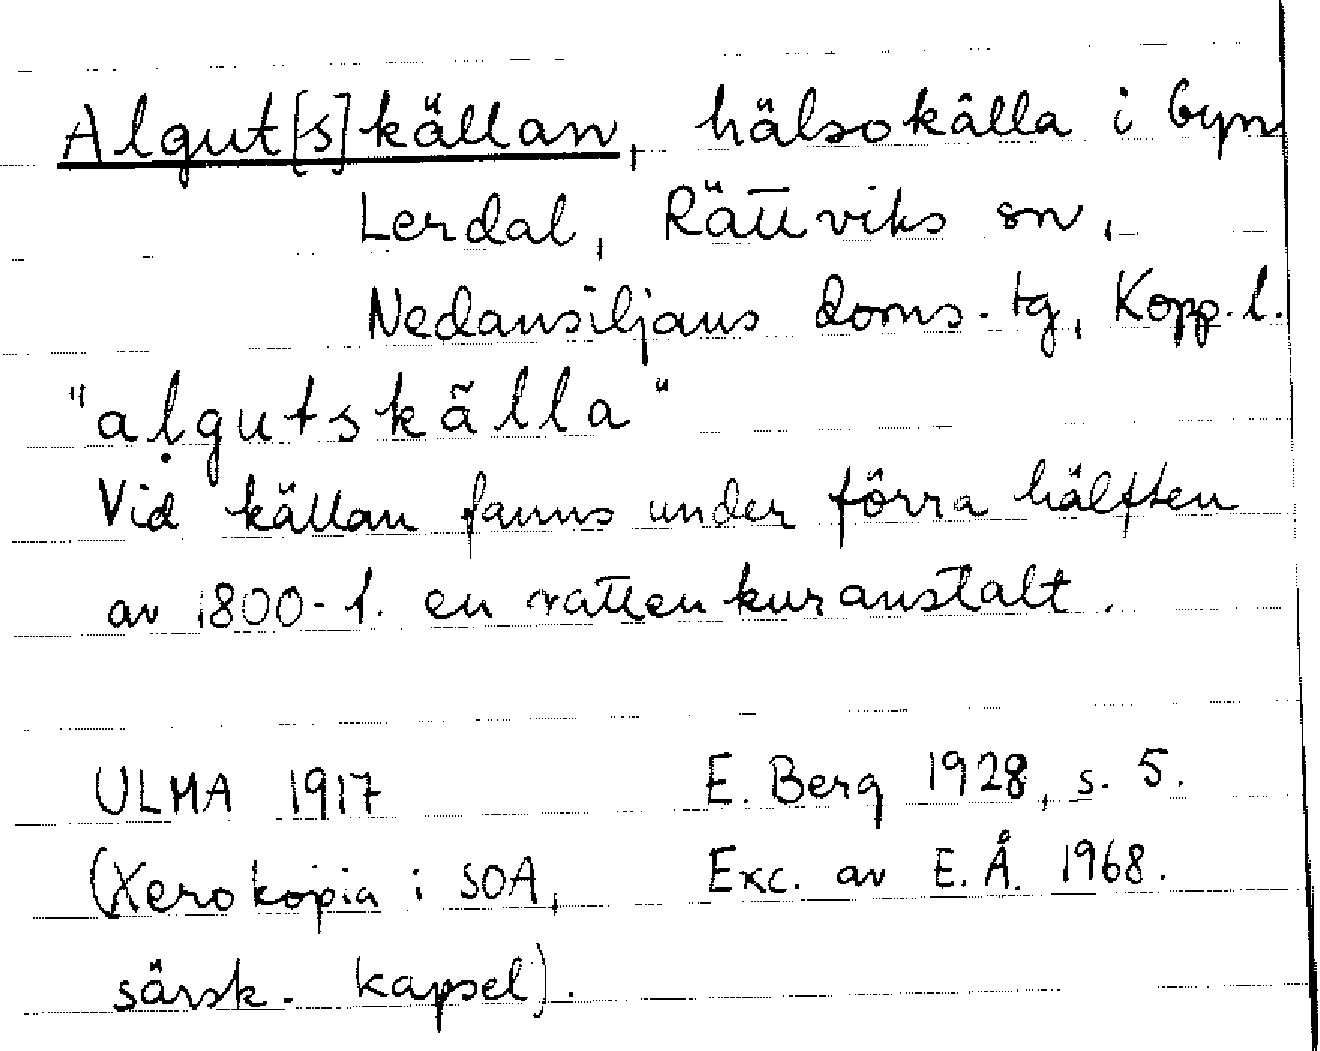 Algut[s]källan, hälsokälla i byn
Lerdal, Rättviks sn,
Nedansiljans doms. tg, Kopp. l.
"aḷgutskälla"
Vid källan fanns under förra hälften
av 1800-t. en vattenkuranstalt.
ULMA 1917
(Xerokopia i SOA,
särsk. kapsel).
E. Berg 1928, s. 5.
Exc. av E. Å. 1968.